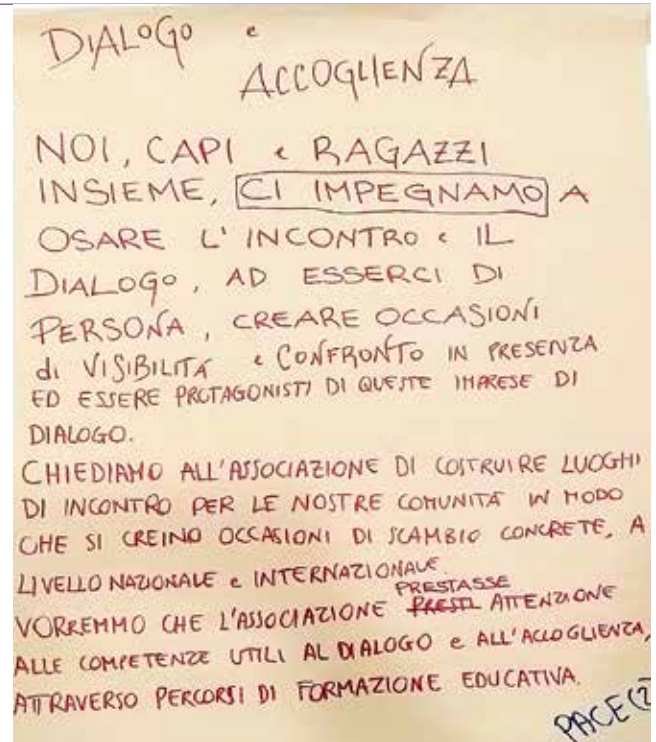 DIALOGO e
ACCOGLIENZA
NOI, CAPI e RAGAZZI
INSIEME, CI IMPEGNAMO A
OSARE L'INCONTRO e IL
DIALOGO, AD ESSERCI DI
PERSONA, CREARE OCCASIONI
di VISIBILITÀ e CONFRONTO IN PRESENZA
ED ESSERE PROTAGONISTI DI QUESTE IMPRESE DI
DIALOGO.
CHIEDIAMO ALL'ASSOCIAZIONE DI COSTRUIRE LUOGHI
DI INCONTRO PER LE NOSTRE COMUNITÀ IN MODO
CHE SI CREINO OCCASIONI DI SCAMBIO CONCRETE, A
LIVELLO NAZIONALE e INTERNAZIONALE.
PRESTASSE
VORREMMO CHE L'ASSOCIAZIONE PRESTI ATTENZIONE
ALLE COMPETENZE UTILI AL DIALOGO e ALL'ACCOGLIENZA,
ATTRAVERSO PERCORSI DI FORMAZIONE EDUCATIVA.
PACE (2